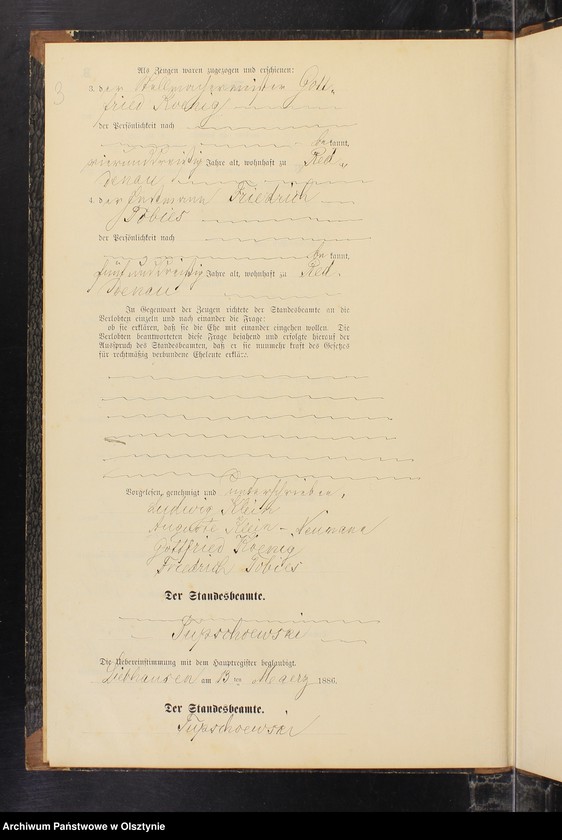 Als Zeugen waren zugezogen und erschienen:
3
der Stellmachermeister Gott-
fried Koenig
der Persönlichkeit nach
be kannt,
vierunddreißig Jahre alt, wohnhaft zu Red-
denau
der Friedrich
Tobies
der Persönlichkeit nach
be kannt,
fünfunddreißig Jahre alt, wohnhaft zu Red-
denau
In Gegenwart der Zeugen richtete der Standesbeamte an die
Verlobten einzeln und nach einander die Frage:
ob sie erklären, daß sie die Ehe mit einander eingehen wollen. Die
Verlobten beantworteten diese Frage bejahend und erfolgte hierauf der
Ausspruch des Standesbeamten, daß er sie nunmehr kraft des Gesetzes
für rechtmäßig verbundene Eheleute erkläre.
Vorgelesen, genehmigt und unterschrieben,
Ludwig Klein
Auguste Klein - Neumann
Gottfried Koenig
Friedrich Tobies
Der Standesbeamte.
Die Uebereinstimmung mit dem Hauptregister beglaubigt.
Liebhausen am 13 ten Maerz 1886.
Der Standesbeamte.
Archiwum Państwowe w Olsztynie